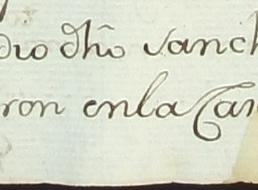 dio dho sanch
ron enla Cas